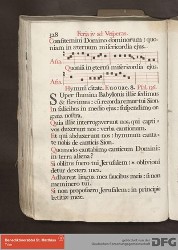 328 Feria iv. ad Vesperas.
Confitemini Domino dominorum: quoniam in æternum misericordia ejus.
Aña.
Quoniã in æternũ misericordia ejus.
Aña.
Hymnũ cãtate. Euouae. 8. Psal. 136.
Super flumina Babylonis illic sedimus
& flevimus: cũ recordaremur tui Sion.
In salicibus in medio ejus: suspendimus organa nostra.
Quia illic interrogaverunt nos, qui captivos duxerunt nos: verba cantionum.
Et qui abduxerunt nos: hymnum cantate nobis de canticis Sion.
Quomodo cantabimus canticum Domini:
in terra aliena?
Si oblitus fuero tui Jerusalem: oblivioni
detur dextera mea.
Adhæreat lingua mea faucibus meis: si non
meminero tui.
Si non proposuero Jerusalem: in principio
lætitiæ meæ.
DFG